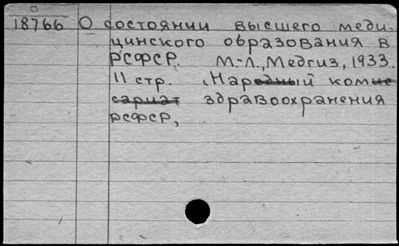 О
18766 О состоянии высшего меди-
цинского образования в
РСФСР. М.-Л., Медгиз, 1933.
11 стр. , Народный комис
сариат здравоохранения
РСФСР,